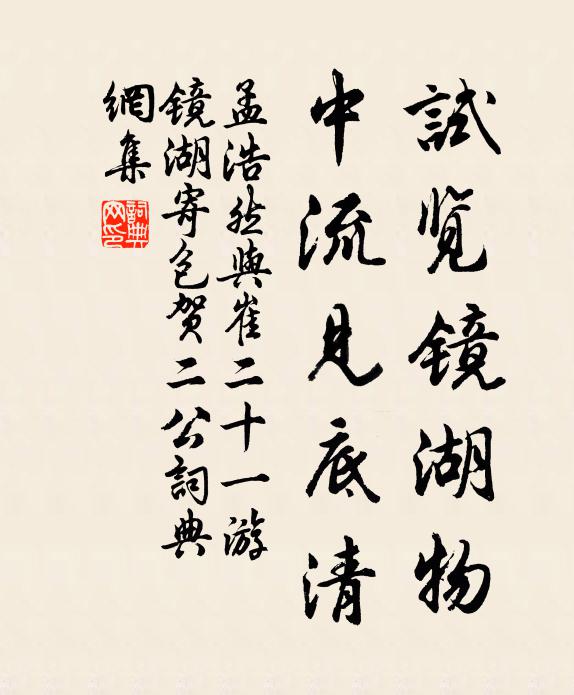 試览镜湖物
中流見底清
孟浩然與崔二十一游
镜湖寄包贺二公詞典
網集
詞典
网印